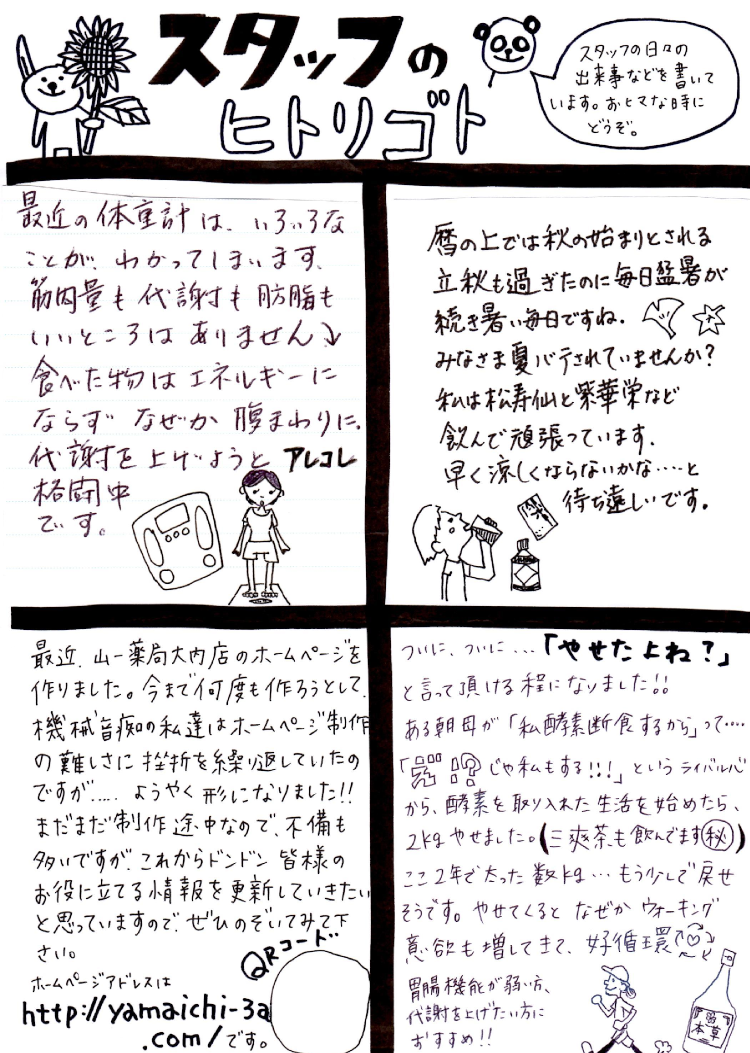 スタッフの
ヒトリゴト
スタッフの日々の
出来事などを書いて
います。おヒマな時に
どうぞ。
最近の体重計は、いろいろな
ことが、わかってしまいます。
筋肉量も代謝も肪脂も
いいところはありません↓
食べた物はエネルギーに
ならず なぜか 腹まわりに。
代謝を上げようと アレコレ
格闘中
です。
暦の上では秋の始まりとされる
立秋も過ぎたのに毎日猛暑が
続き暑い毎日ですね。
みなさま夏バテされていませんか?
私は松寿仙と紫華栄など
飲んで頑張っています。
早く涼しくならないかな……と
待ち遠しいです。
最近、山一薬局大内店のホームページを
作りました。今まで何度も作ろうとして、
機械音痴の私達はホームページ制作
の難しさに挫折を繰り返していたの
ですが..... ようやく形になりました!!
まだまだ制作途中なので、不備も
多いですが、これからドンドン皆様の
お役に立てる情報を更新していきたい
と思っていますので、ぜひのぞいてみて下
さい。
QRコード
ホームページアドレスは
http://yamaichi-3a
.com/です。
ついに、ついに...「やせたよね?」
と言って頂ける程になりました!!
ある朝母が「私酵素断食するから」って....
「!? じゃ私もする!!!」というライバル心
から、酵素を取り入れた生活を始めたら、
2kgやせました。(三爽茶も飲んでます㊙)
ここ2年で太った数kg…もう少しで戻せ
そうです。やせてくると なぜか ウォーキング
意欲も増してきて、好循環
胃腸機能が弱い方、
代謝を上げたい方に
おすすめ!!
本草